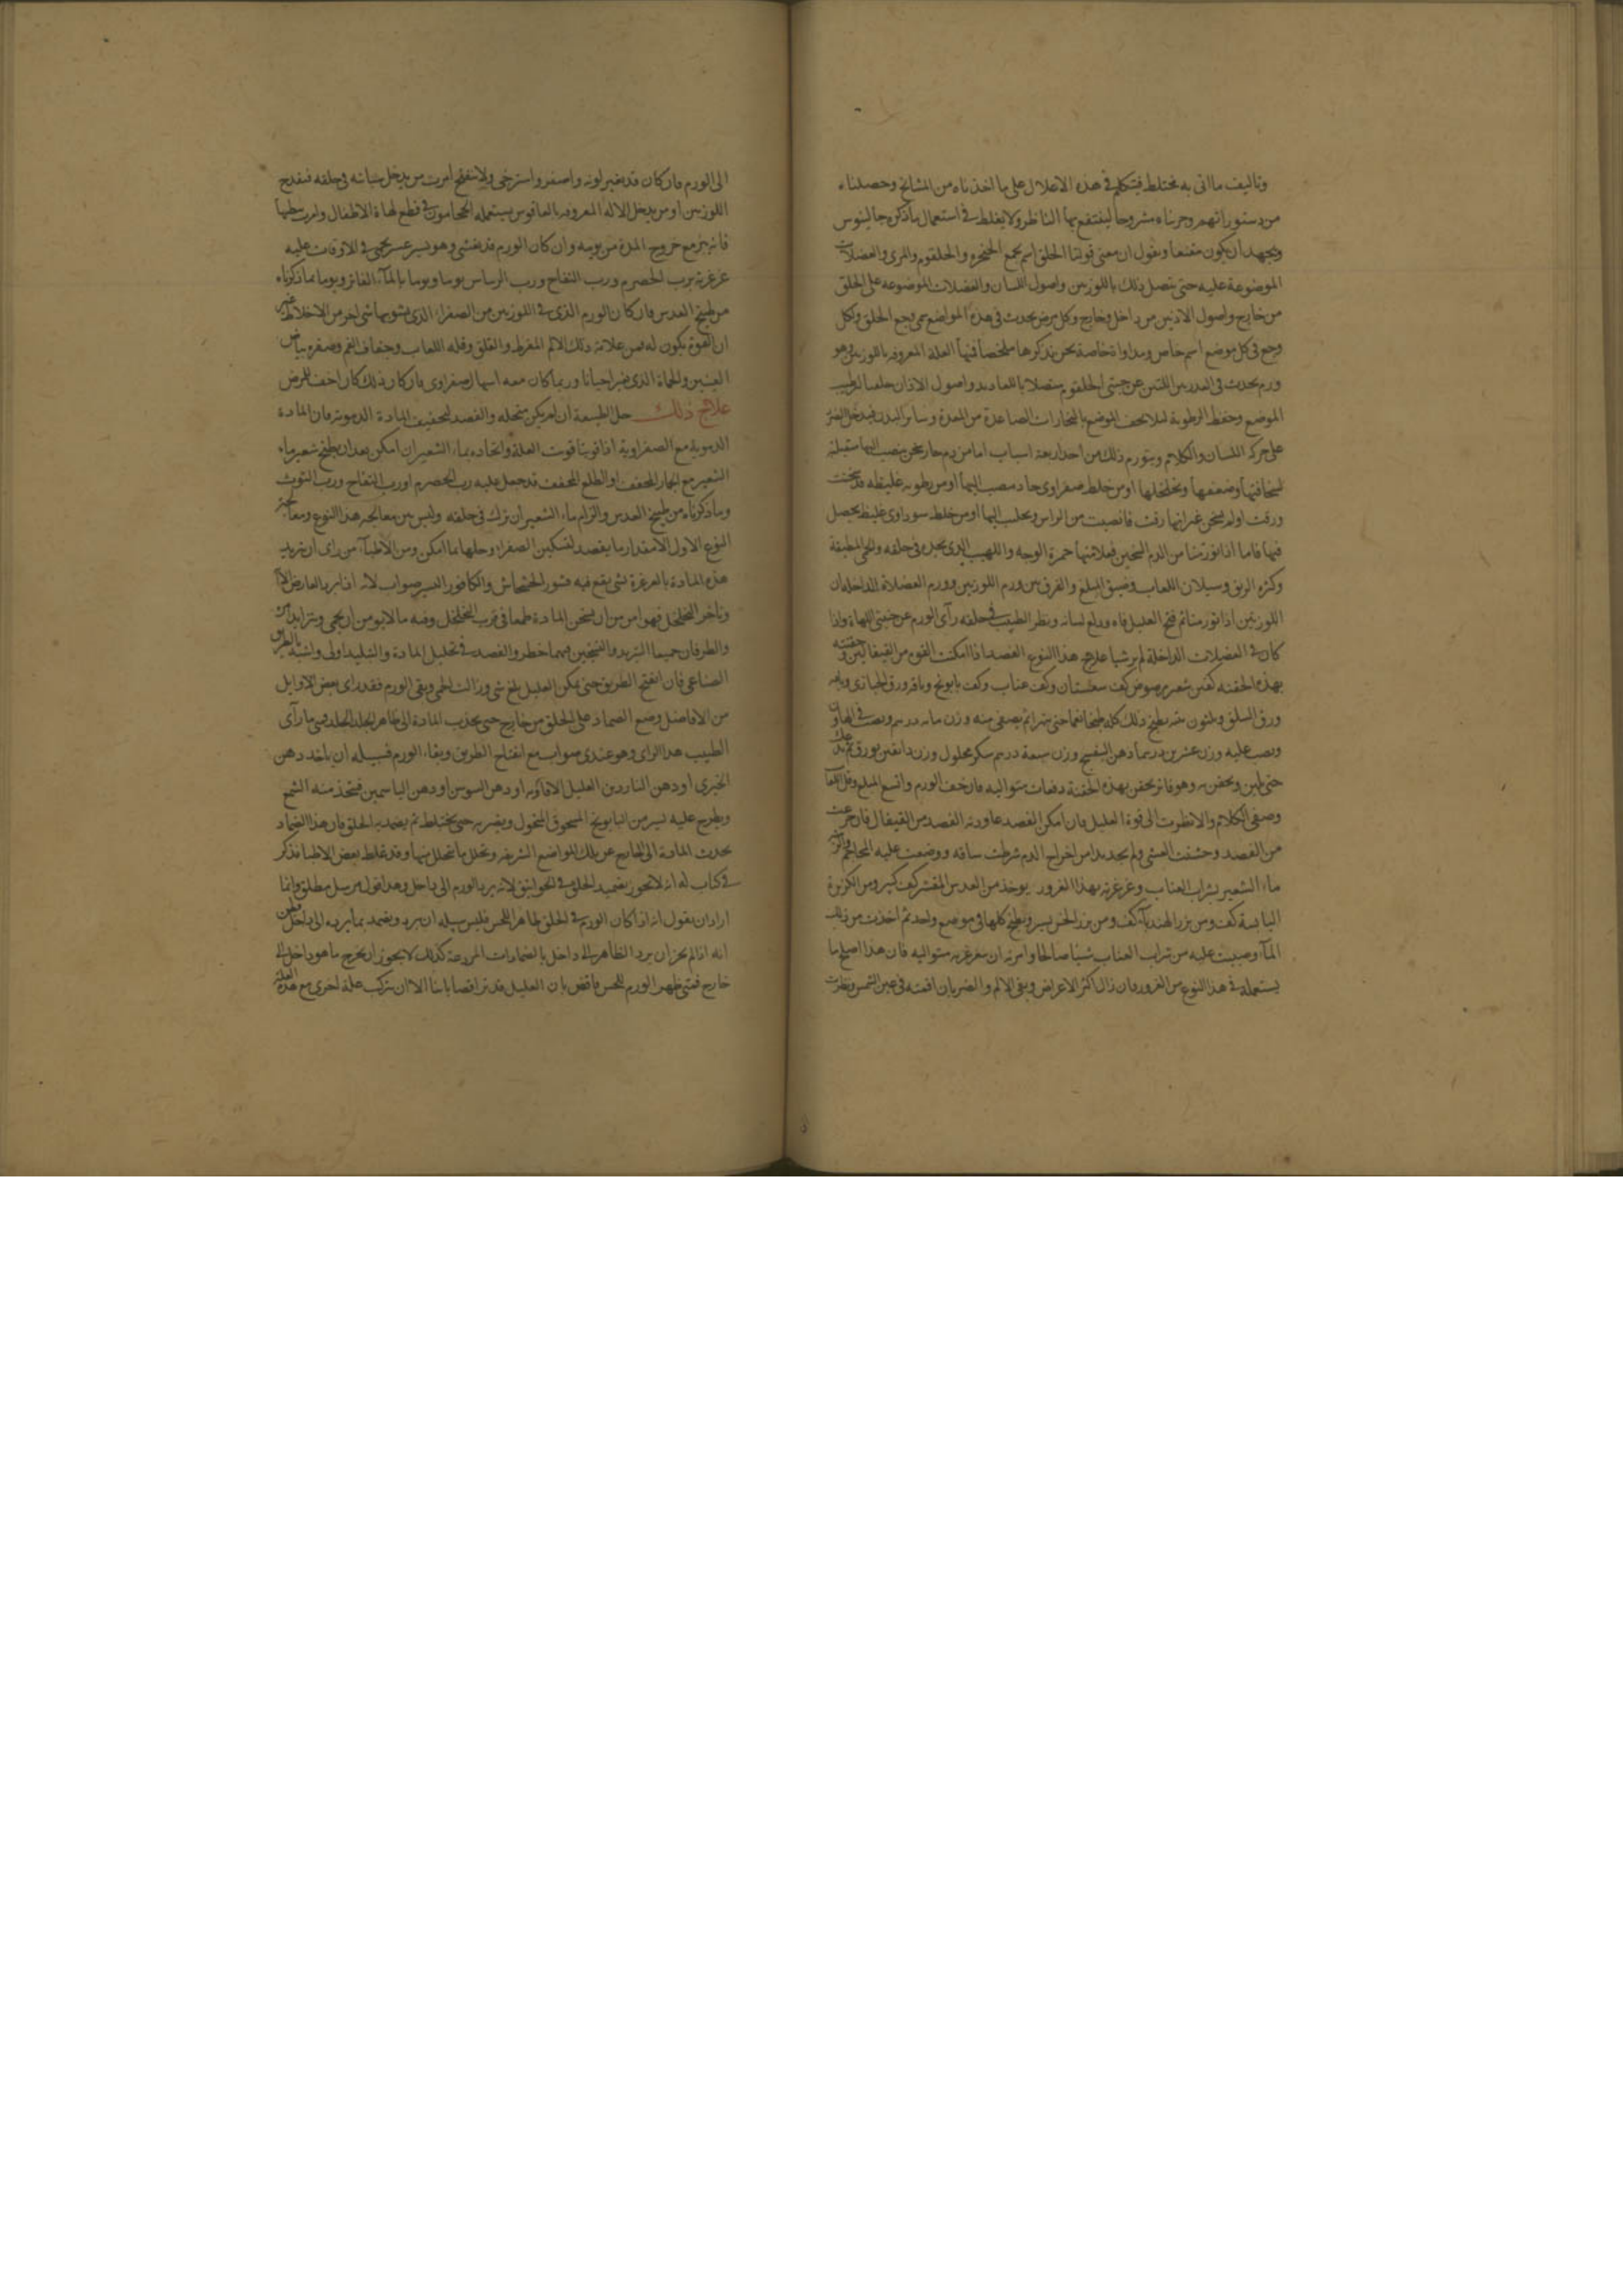 وتاليف ماانى به مختلط فيتكلم فى هذه الاعلال على ما اخذناه من المشايخ وحصلناه
من دستوراتهم وجرناه مشروحا لينتفع بها الناظر ولا يغلط فى استعمال ماذكره جالينوس
ويجهد ان يكون مقنعا ونقول ان معنى قولنا الحلق اسم يجمع الحنجره والحلقوم والمرى والعضلات
الموضوعة عليه حتى يتصل ذلك باللوزتين واصول اللسان والعضلات الموضوعه على الحلق
من خارج واصول الاذنين من داخل وخارج وكل مرض يحدث فى هذه المواضع سمى وجع الحلق ولكل
وجع فى كل موضع اسم خاص ومداواة خاصة نحن نذكرها ملخصا فمنها العلة المعروفه باللوزتين وهو
ورم يحدث فى الغدتين اللتين عن جنبتى الحلقوم متصلا باللغاديد واصول الاذان خلقتا لترطيب
الموضع وحفظ الرطوبة ليلا يجف الموضع بالبخارات الصاعدة من المعدة وساير البدن فيدخل الضرر
على حركة اللسان والكلام ويتورم ذلك من احد اربعة اسباب اما من دم حار سخن ينصب اليها ستقبلة
لسخافتها وضعفها وتخلخلها او من خلط صفراوى حاد ينصب اليها او من رطوبه غليظه قد سخنت
ورقت اولم تسخن غير انها رقت فانصبت من الراس وتحلب اليها او من خلط سوداوى غليظ يحصل
فيها فاما اذا تورمتا من الدم السخين فعلامتها حمرة الوجه واللهيب الذى يجده فى حلقه والحمى المطبقة
وكثره الريق وسيلان اللعاب وضيق المبلع والفرق بين ورم اللوزتين وورم العضلات الداخله ان
اللوزتين اذا تورمتا ثم فتح العليل فاه ودلع لسانه ونظر الطبيب فى حلقه رآى الورم عن جنبتى اللهاة واذا
كان فى العضلات الداخلة لم ير شيا علاج هذا النوع الفصد اذا امكنت القوه من القيفالين وحقنته
بهذه الحقنه كفين شعير مرضوض كف سبستان وكف عناب وكف بابونج وباقه ورق الخبازى وباقه
ورق السلق وثلثون تينه يطبخ ذلك كله طبخا ناعما حتى يتهرا ثم يصفى منه وزن مايه درهم ويصب فى الهاون
ويصب عليه وزن عشرين درهما دهن البنفسج وزن سبعة درهم سكر محلول وزن دانقين بورق ثم يدلك
حتى يلين ويحقن به وهو فاتر يحقن بهذه الحقنة دفعات متواليه فان خف الورم واتسع المبلع وقل اللعاب
وصفى الكلام والا نظرت الى قوة العليل فان امكن الفصد عاودته الفصد من القيفال فان جزعت
من الفصد وخشيت الغشى ولم يجد بدا من اخراج الدم شرطت ساقه ووضعت عليه المحاجم والزمته
ماء الشعير بشراب العناب وغرغرته بهذا الغرور يوخذ من العدس المقشر كف كبير ومن الكزبرة
اليابسة كف ومن بزر الهندباء كف ومن بزر الخس يسير ويطبخ كلها فى موضع واحد ثم اخذت من ذلك
المآ وصببت عليه من شراب العناب شيئا صالحا وامرته ان يتغرغر به متواليه فان هذا اصلح ما
يستعمله فى هذا النوع من الغرور فان زال اكثر الاعراض وبقى الالم والضربان اقمته فى عين الشمس ونظرت
الى الورم فان كان قد تغير لونه واصفر واسترخى ولا ينفتح امرت من يدخل سبابته فى حلقه فيقدح
اللوزتين او من يدخل الاله المعروفه بالفاقوس يستعمله الحجامون فى قطع لهاة الاطفال وامرت ببطها
فانه يبرء مع خروج المدة من يومه وان كان الورم قد تفشى وهو يسير عسر يحمى فى الاوقات عليه
غرغرته برب الحصرم ورب التفاح ورب الريباس يوما ويوما بالمآء الفاتر ويوما بما ذكرناه
من طبيخ العدس فان كان الورم الذى فى اللوزتين من الصفراء الذى يشوبها شى اخر من الاخلاط غير
ان القوة يكون له فمن علامة ذلك الالم المفرط والقلق وقله اللعاب وجفاف الفم وصفره بياض
العينين والحماة الذى يفتر احيانا وربما كان معه اسهال صفراوى فان كان ذلك كان اخف للمرض
علاج ذلك حل الطبيعة ان لم يكن منحله والفصد لتخفيف المادة الدمويه فان المادة
الدموية مع الصفراوية اذا قويتا قويت العلة واتخاذه بماء الشعير ان امكن بعد ان يطبخ شعير ماء
الشعير مع الجمار المجفف او الطلع المجفف قد جعل عليه رب الحصرم او رب التفاح ورب التوث
وما ذكرناه من طبيخ العدس والزام ماء الشعير ان نزل فى حلقه وليس بين معالجه هذا النوع ومعالجة
النوع الاول الا مقدار ما يقصد لتسكين الصفراء وحلها بما امكن ومن الاطبآء من راى ان تبريد
هذه المادة بالغرغرة بشى يقع فيه قشور الخشخاش والكافور اليسير صواب لانه اذا برد العارض
وتاخر التحلخل فهو امر من ان يسخن المادة طمعا فى قرب التخلخل وفيه ما لا يومن ان يحمى ويتزايد
والطرفان جميعا التبريد والتسخين فيهما خطر والقصد فى تحليل المادة والتبليد اولى واشبه بالطريق
الصناعى فان انفتح الطريق حتى يمكن العليل بلع شى وزالت الحمى وبقى الورم فقد راى بعض الاوايل
من الافاضل وضع الضماد على الحلق من خارج حتى يجذب المادة الى ظاهر الجلد فمتى ما رآى
الطبيب هذا الراى وهو عندى صواب مع انفتاح الطريق وبقاء الورم فسبيله ان ياخذ دهن
الخيرى او دهن الناردين القليل الافاويه او دهن السوس او دهن الياسمين فيتخذ منه الشمع
ويطرح عليه يسير من البابونج المسحوق المنخول ويضربه حتى يختلط ثم يضمد به الحلق فان هذا الضماد
يجذب المادة الى الخارج عن تلك المواضع الشريفه ويحلل ما يتحلل منها وقد غلط بعض الاطبا فذكر
فى كتاب له انه لا يجوز تضميد الحلق فى الخوانيق لانه يرد بالورم الى داخل وهذا قول مرسل مطلق وانما
اراد ان يقول انه اذا كان الورم فى الحلق ظاهرا للحس فليس سبيله ان يبرد ويضمد بما يرده الى داخل
انه اذا لم يجز ان يرد الظاهر الى داخل بالضمادات المردعة كذلك لا يجوز ان يخرج ما هو داخل الى
خارج فمتى ظهر الورم للحس فاقض بان العليل قد برا قضا باتا الا ان يتركب علة اخرى مع هذه العلة